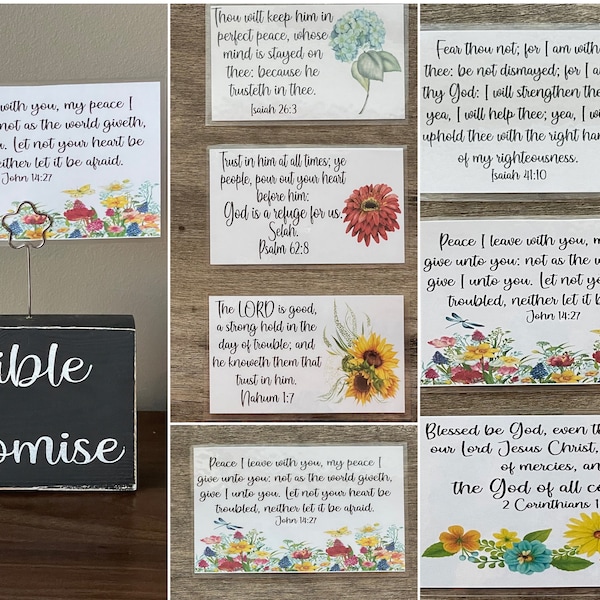 with you, my peace I
not as the world giveth,
Let not your heart be
neither let it be afraid.
John 14:27
Thou wilt keep him in
perfect peace, whose
mind is stayed on
thee: because he
trusteth in thee.
Isaiah 26:3
Trust in him at all times; ye
people, pour out your heart
before him:
God is a refuge for us.
Selah.
Psalm 62:8
The LORD is good,
a strong hold in the
day of trouble; and
he knoweth them that
trust in him.
Nahum 1:7
Peace I leave with you, my peace I
give unto you: not as the world giveth,
give I unto you. Let not your heart be
troubled, neither let it be afraid.
John 14:27
Fear thou not; for I am with
thee: be not dismayed; for I am
thy God: I will strengthen thee
yea, I will help thee; yea, I wi
uphold thee with the right han
of my righteousness.
Isaiah 41:10
Peace I leave with you, m
give unto you: not as the w
give I unto you. Let not yo
troubled, neither let it be
John 14:27
Blessed be God, even th
our Lord Jesus Christ,
of mercies, an
the God of all co
2 Corinthians 1
ible
omise